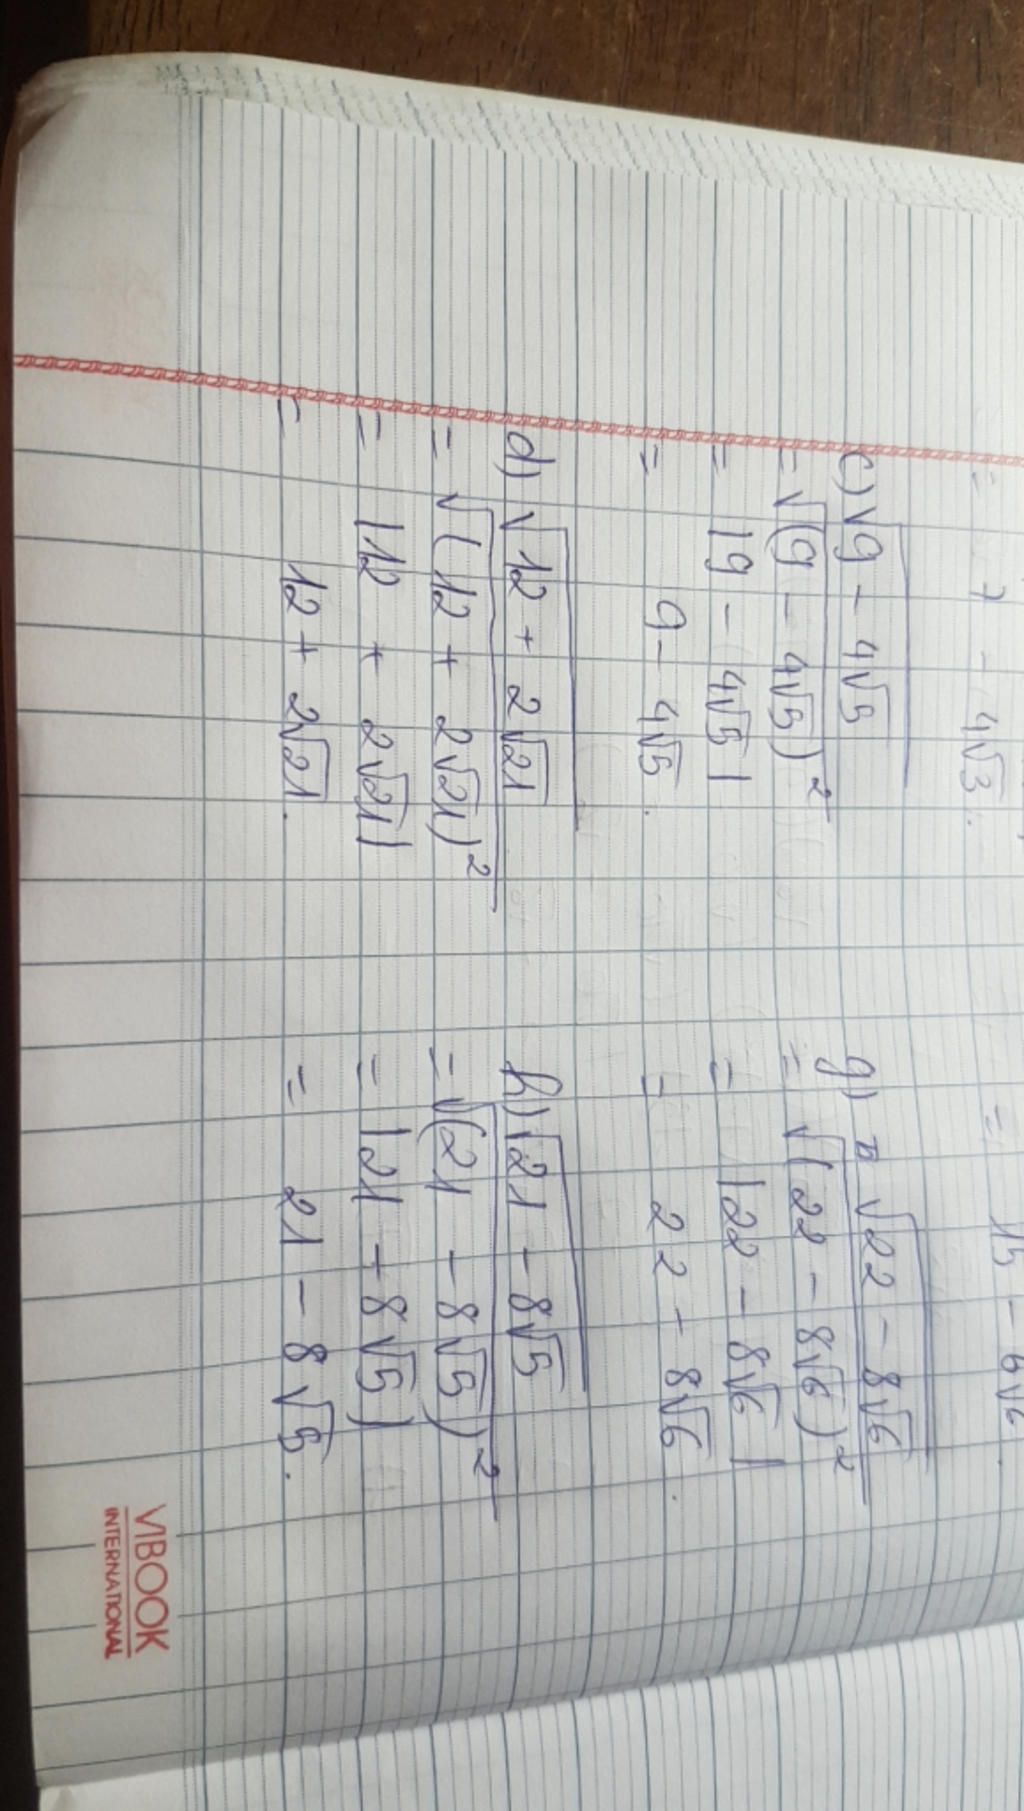 = 7 - 4√3.
c) √9 - 4√5
= √(9 - 4√5)²
= |9 - 4√5|
= 9 - 4√5.
d) √12 + 2√21
= √(12 + 2√21)²
= |12 + 2√21|
= 12 + 2√21.
= 15 - 6√6.
g) √22 - 8√6
= √(22 - 8√6)²
= |22 - 8√6|
= 22 - 8√6.
h) √21 - 8√5
= √(21 - 8√5)²
= |21 - 8√5|
= 21 - 8√5.
VIBOOK
INTERNATIONAL